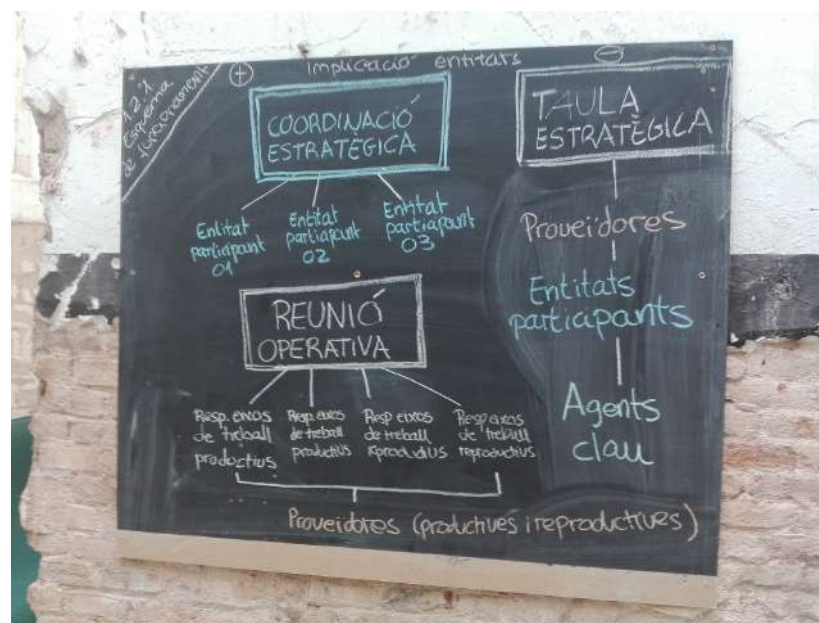 1.2.1
Esquema
de funcionament
+ implicació entitats -
COORDINACIÓ
ESTRATÈGICA
Entitat
participant
01
Entitat
participant
02
Entitat
participant
03
REUNIÓ
OPERATIVA
Resp. eixos
de treball
productius
Resp. eixos
de treball
productius
Resp eixos
de treball
reproductius
Resp eixos
de treball
reproductius
Proveïdores (productives i reproductives)
TAULA
ESTRATÈGICA
Proveïdores
Entitats
participants
Agents
clau